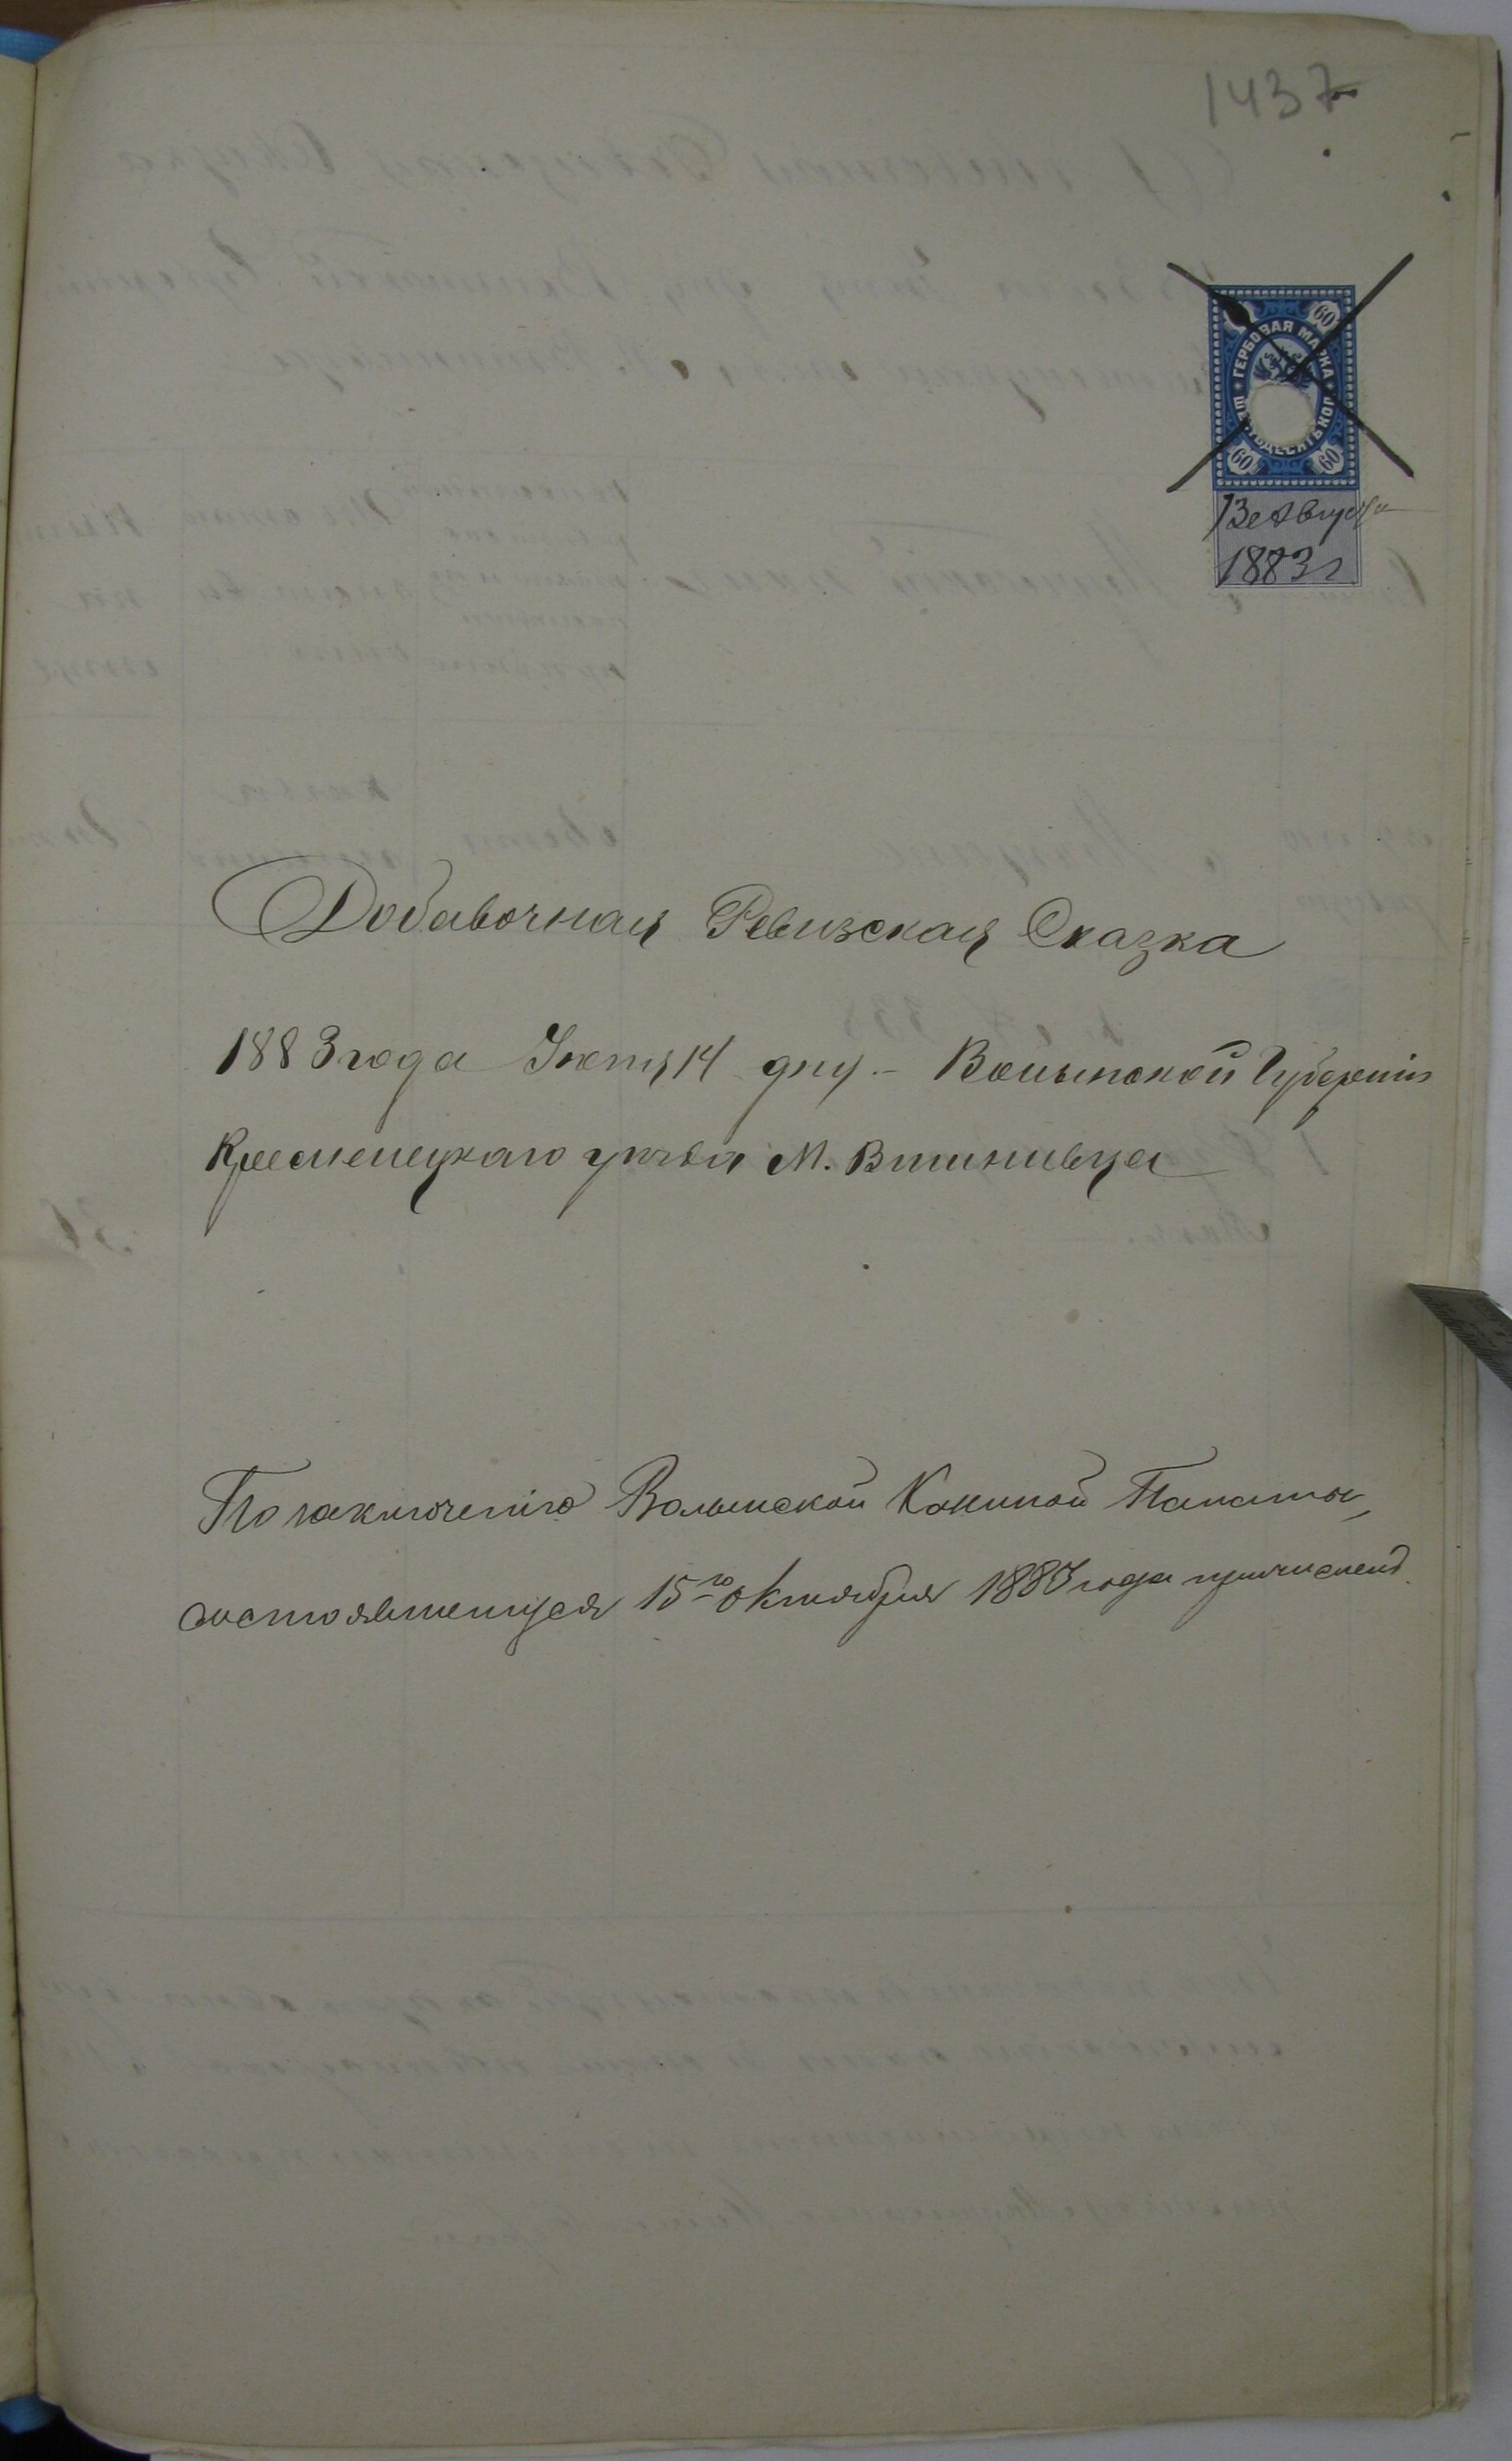 1437
60
ГЕРБОВАЯ МАРКА
60 60
13 Августа
1883 г
Добавочная Ревизская Сказка
1883 года Іюня 14 дня. – Волынской Губерніи
Кременецкаго уѣзда М. Вишнивца
По заключенію Волынской Казенной Палаты,
состоявшемуся 15го Октября 1883 года причисленъ